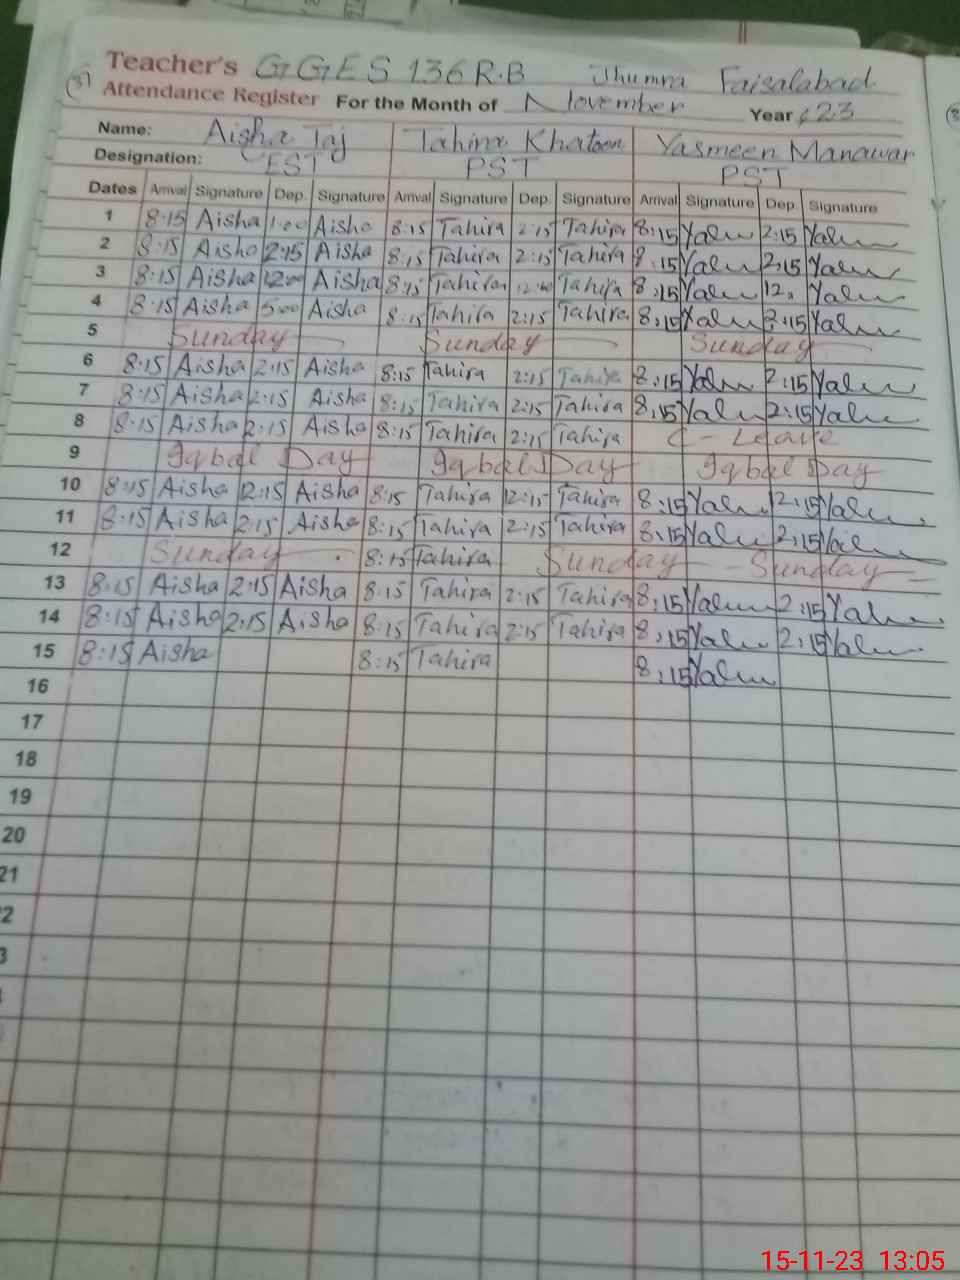 (37) Teacher's GGES 136 R.B Jhumra Faisalabad
Attendance Register For the Month of November Year 23
Name: Aisha Taj Tahira Khatoon Yasmeen Manawar
Designation: EST PST PST
Dates Arrival Signature Dep. Signature Arrival Signature Dep. Signature Arrival Signature Dep. Signature
1 8:15 Aisha 1:00 Aisha 8:15 Tahira 2:15 Tahira 8:15 2:15
2 8:15 Aisha 2:15 Aisha 8:15 Tahira 2:15 Tahira 8:15 2:15
3 8:15 Aisha 12:00 Aisha 8:15 Tahira 12:00 Tahira 8:15 12
4 8:15 Aisha 5:00 Aisha 8:15 Tahira 2:15 Tahira 8:15 2:15
5 Sunday Sunday Sunday
6 8:15 Aisha 2:15 Aisha 8:15 Tahira 2:15 Tahira 8:15 2:15
7 8:15 Aisha 2:15 Aisha 8:15 Tahira 2:15 Tahira 8:15 2:15
8 8:15 Aisha 2:15 Aisha 8:15 Tahira 2:15 Tahira C - Leave
9 Iqbal Day Iqbal Day Iqbal Day
10 8:15 Aisha 2:15 Aisha 8:15 Tahira 2:15 Tahira 8:15 2:15
11 8:15 Aisha 2:15 Aisha 8:15 Tahira 2:15 Tahira 8:15 2:15
12 Sunday 8:15 Tahira Sunday Sunday
13 8:15 Aisha 2:15 Aisha 8:15 Tahira 2:15 Tahira 8:15 2:15
14 8:15 Aisha 2:15 Aisha 8:15 Tahira 2:15 Tahira 8:15 2:15
15 8:15 Aisha 8:15 Tahira 8:15
16
17
18
19
20
21
2
3
15-11-23 13:05